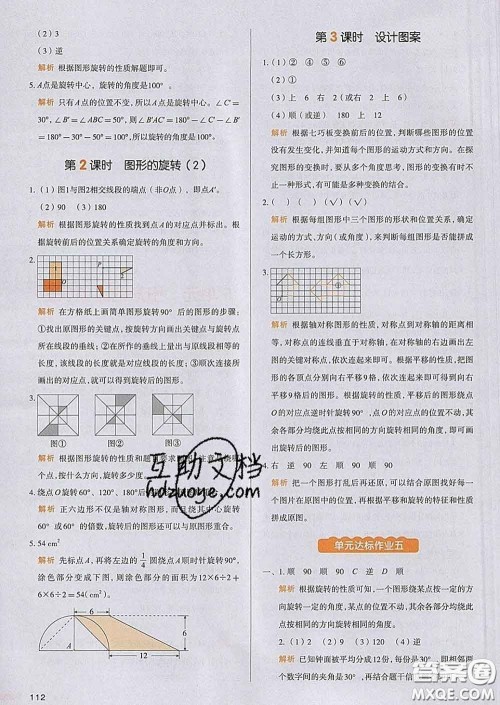 (2)3
(3)逆
解析 根据图形旋转的性质解题即可。
5. A点是旋转中心，旋转的角度是100°。
解析 只有A点的位置不变，所以A点是旋转中心。∠C′=
30°，∠B′=∠B=180°-∠C′-∠A′=
180°-30°-50°=100°，所以旋转的角度是100°。
第2课时 图形的旋转(2)
1. (1)图1与图2相交线段的端点(非O点)，即点A′。
(2)90 (3)180
解析 根据图形旋转的性质找到点A的对应点并标出。根
据旋转前后的位置关系确定旋转的角度和方向。
2.
解析 在方格纸上画简单图形旋转90°后的图形的步骤：
①找出原图形的关键点，按旋转方向画出关键点与旋转点
所在线段的垂线；②在所作的垂线上量出与原线段相等的长
度，该线段的长度就是对应线段的长度；③顺次连接所
画出的对应点，就可以画出旋转后的图形。
3.
图① 图② 图③
解析 根据图形旋转的性质和题
个点，按什么方向，旋转多少度。
4. 绕点O旋转60°、120°、180°
解析 正六边形不仅是轴对称图形，而且绕其中心旋转
60°或60°的倍数，旋转后的图形还可以与原图形重合。
5. 54 cm²
解析 先标点A，再将左边的1/4圆绕点A顺时针旋转90°，
涂色部分变成下图，则涂色部分的面积=12×6-
6×6÷2=54(cm²)。
6
6
A
12
112
第3课时 设计图案
1. (1)② ④ ⑤ ⑥
(2)① ③
(3)上 6 右 2 (或右 2 上 6)
(4)顺(或逆) 180
解析 根据七巧板变换前后的位置，判断哪些图形的位置
没有发生变化，并知道每个图形的运动方式和方向。在探
究图形的变换时，要从多个角度思考，图形的变换有时不
止一种形式，有可能是多种变换的结合。
2. ( ) ( ) (√)
解析 根据每组图形中三个图形的形状和位置关系，确定
运动的方式、方向(或角度)，来判断每组图形是否能拼成
一个长方形。
3.
解析 根据轴对称图形的性质，对称点到对称轴的距离相
等，对称点的连线垂直于对称轴，在对称轴的右边画出左
图的关键对称点，依次连起来即可得到
图形向右平移9格，就是把图形的关键点
分别向右平移9格，依次连起来即可得到向右
平移9格后的图形。平移后的图形绕点
O的对应点逆时针旋转90°，点O的对应点的位置不动，其
余各部分均绕此点按相同方向旋转相同的角度，即可画出
旋转后的图形。
4. 右 逆 90 左 顺 90 顺 90
解析 把一个图形打乱后再还原，可以根据原图先找出每
个图片在原图中的位置，再根据平移和旋转的特征和性质
拼成原图。
单元达标作业五
一、1. 顺 90 顺 90 C 逆 D 顺
解析 根据旋转的性质可知，一个图形绕某点按一定的方
向旋转一定的角度，某点的位置不动，其余各部分均绕此
点按相同的方向旋转相同的角度。
2. (1)(2)12 顺 90 (3)顺 120
解析 已知钟面被平均分成12份，每份是30°，每相邻两
个数字间的夹角是30°，再
互助文档
hdzuoye.com
答案圈
MXQE.COM